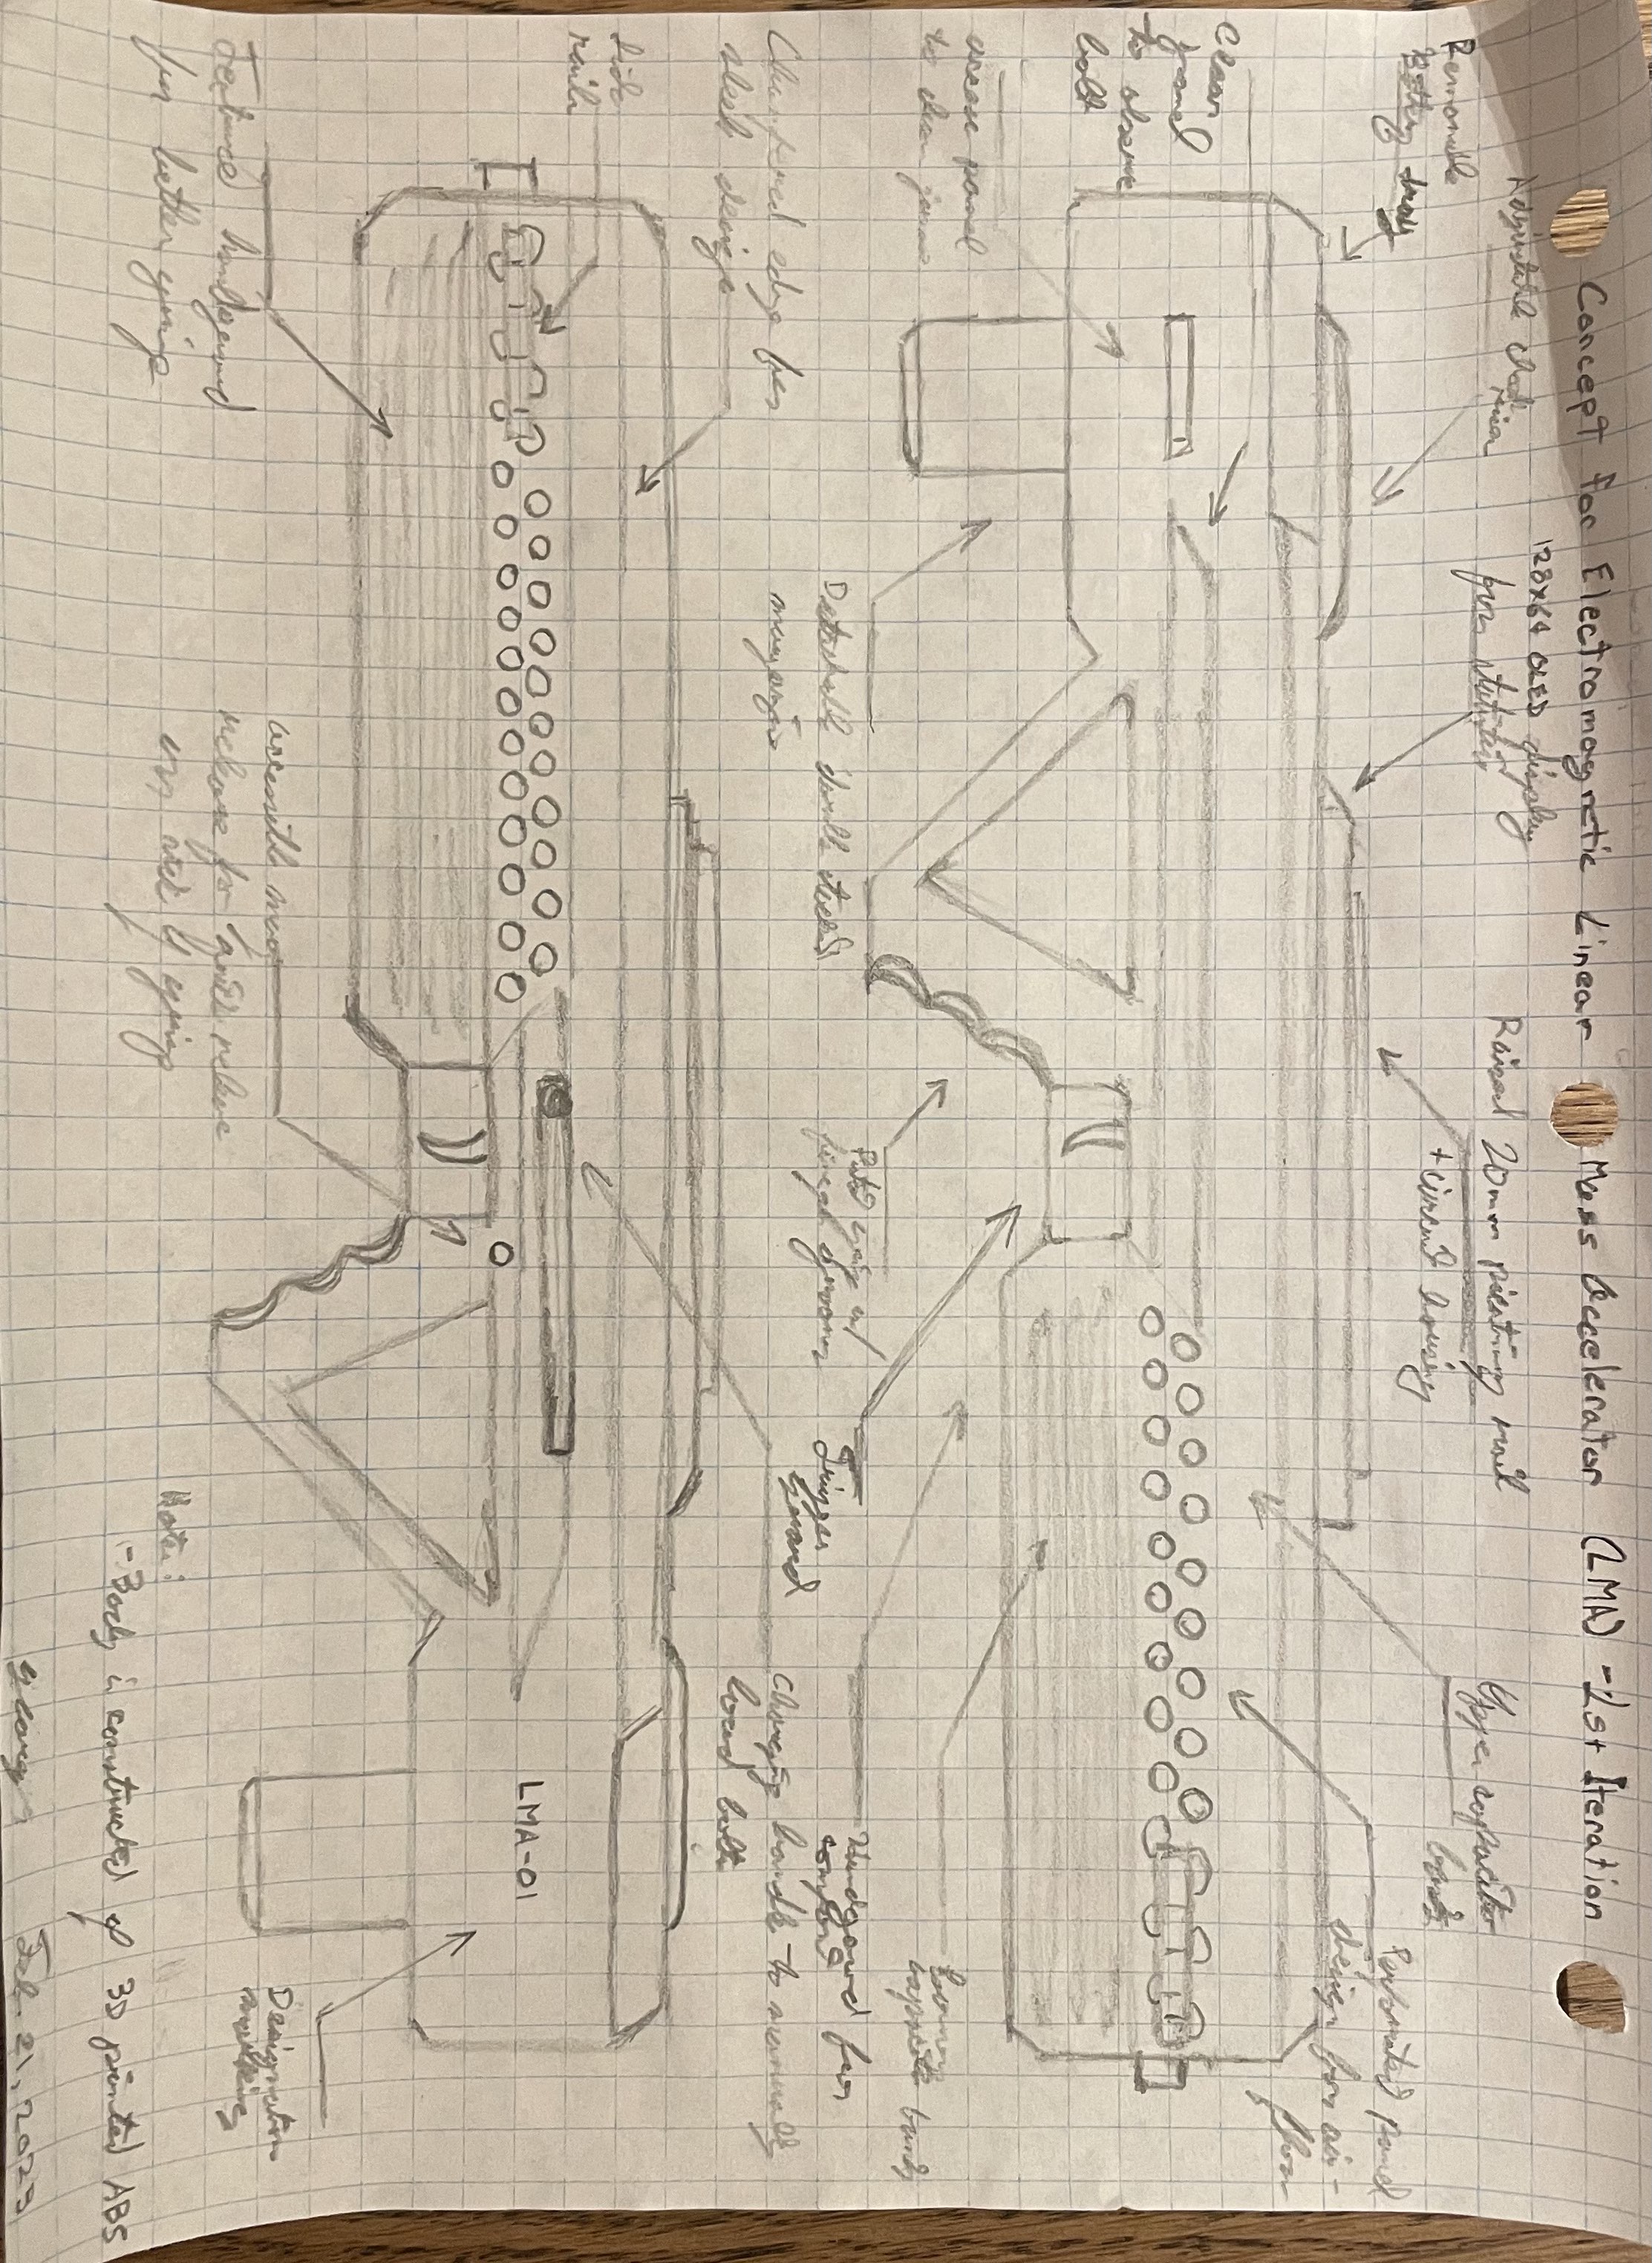 Concept for Electromagnetic Linear Mass Accelerator (LMA) - 1st Iteration
Adjustable cheek
riser
128x64 OLED display
for statistics
Raised 20mm picatinny rail
+ circuit housing
Upper capacitor
bank
Removable
Battery tray
Perforated panel
design for air-
flow
Clear
panel
to observe
bolt
access panel
to clean jams
Detachable double stacked
magazine
Pistol grip w/
finger grooves
Trigger
guard
Lower
capacitor bank
Handguard for
comfort
Chamfered edge for
sleek design
Charging handle to manually
load bolt
Side
rails
LMA-01
Textured handguard
for better grip
accessible mag
release for quick release
grip
Designation
marking
Note:
- Body is constructed of 3D printed ABS
Feb. 21, 2023